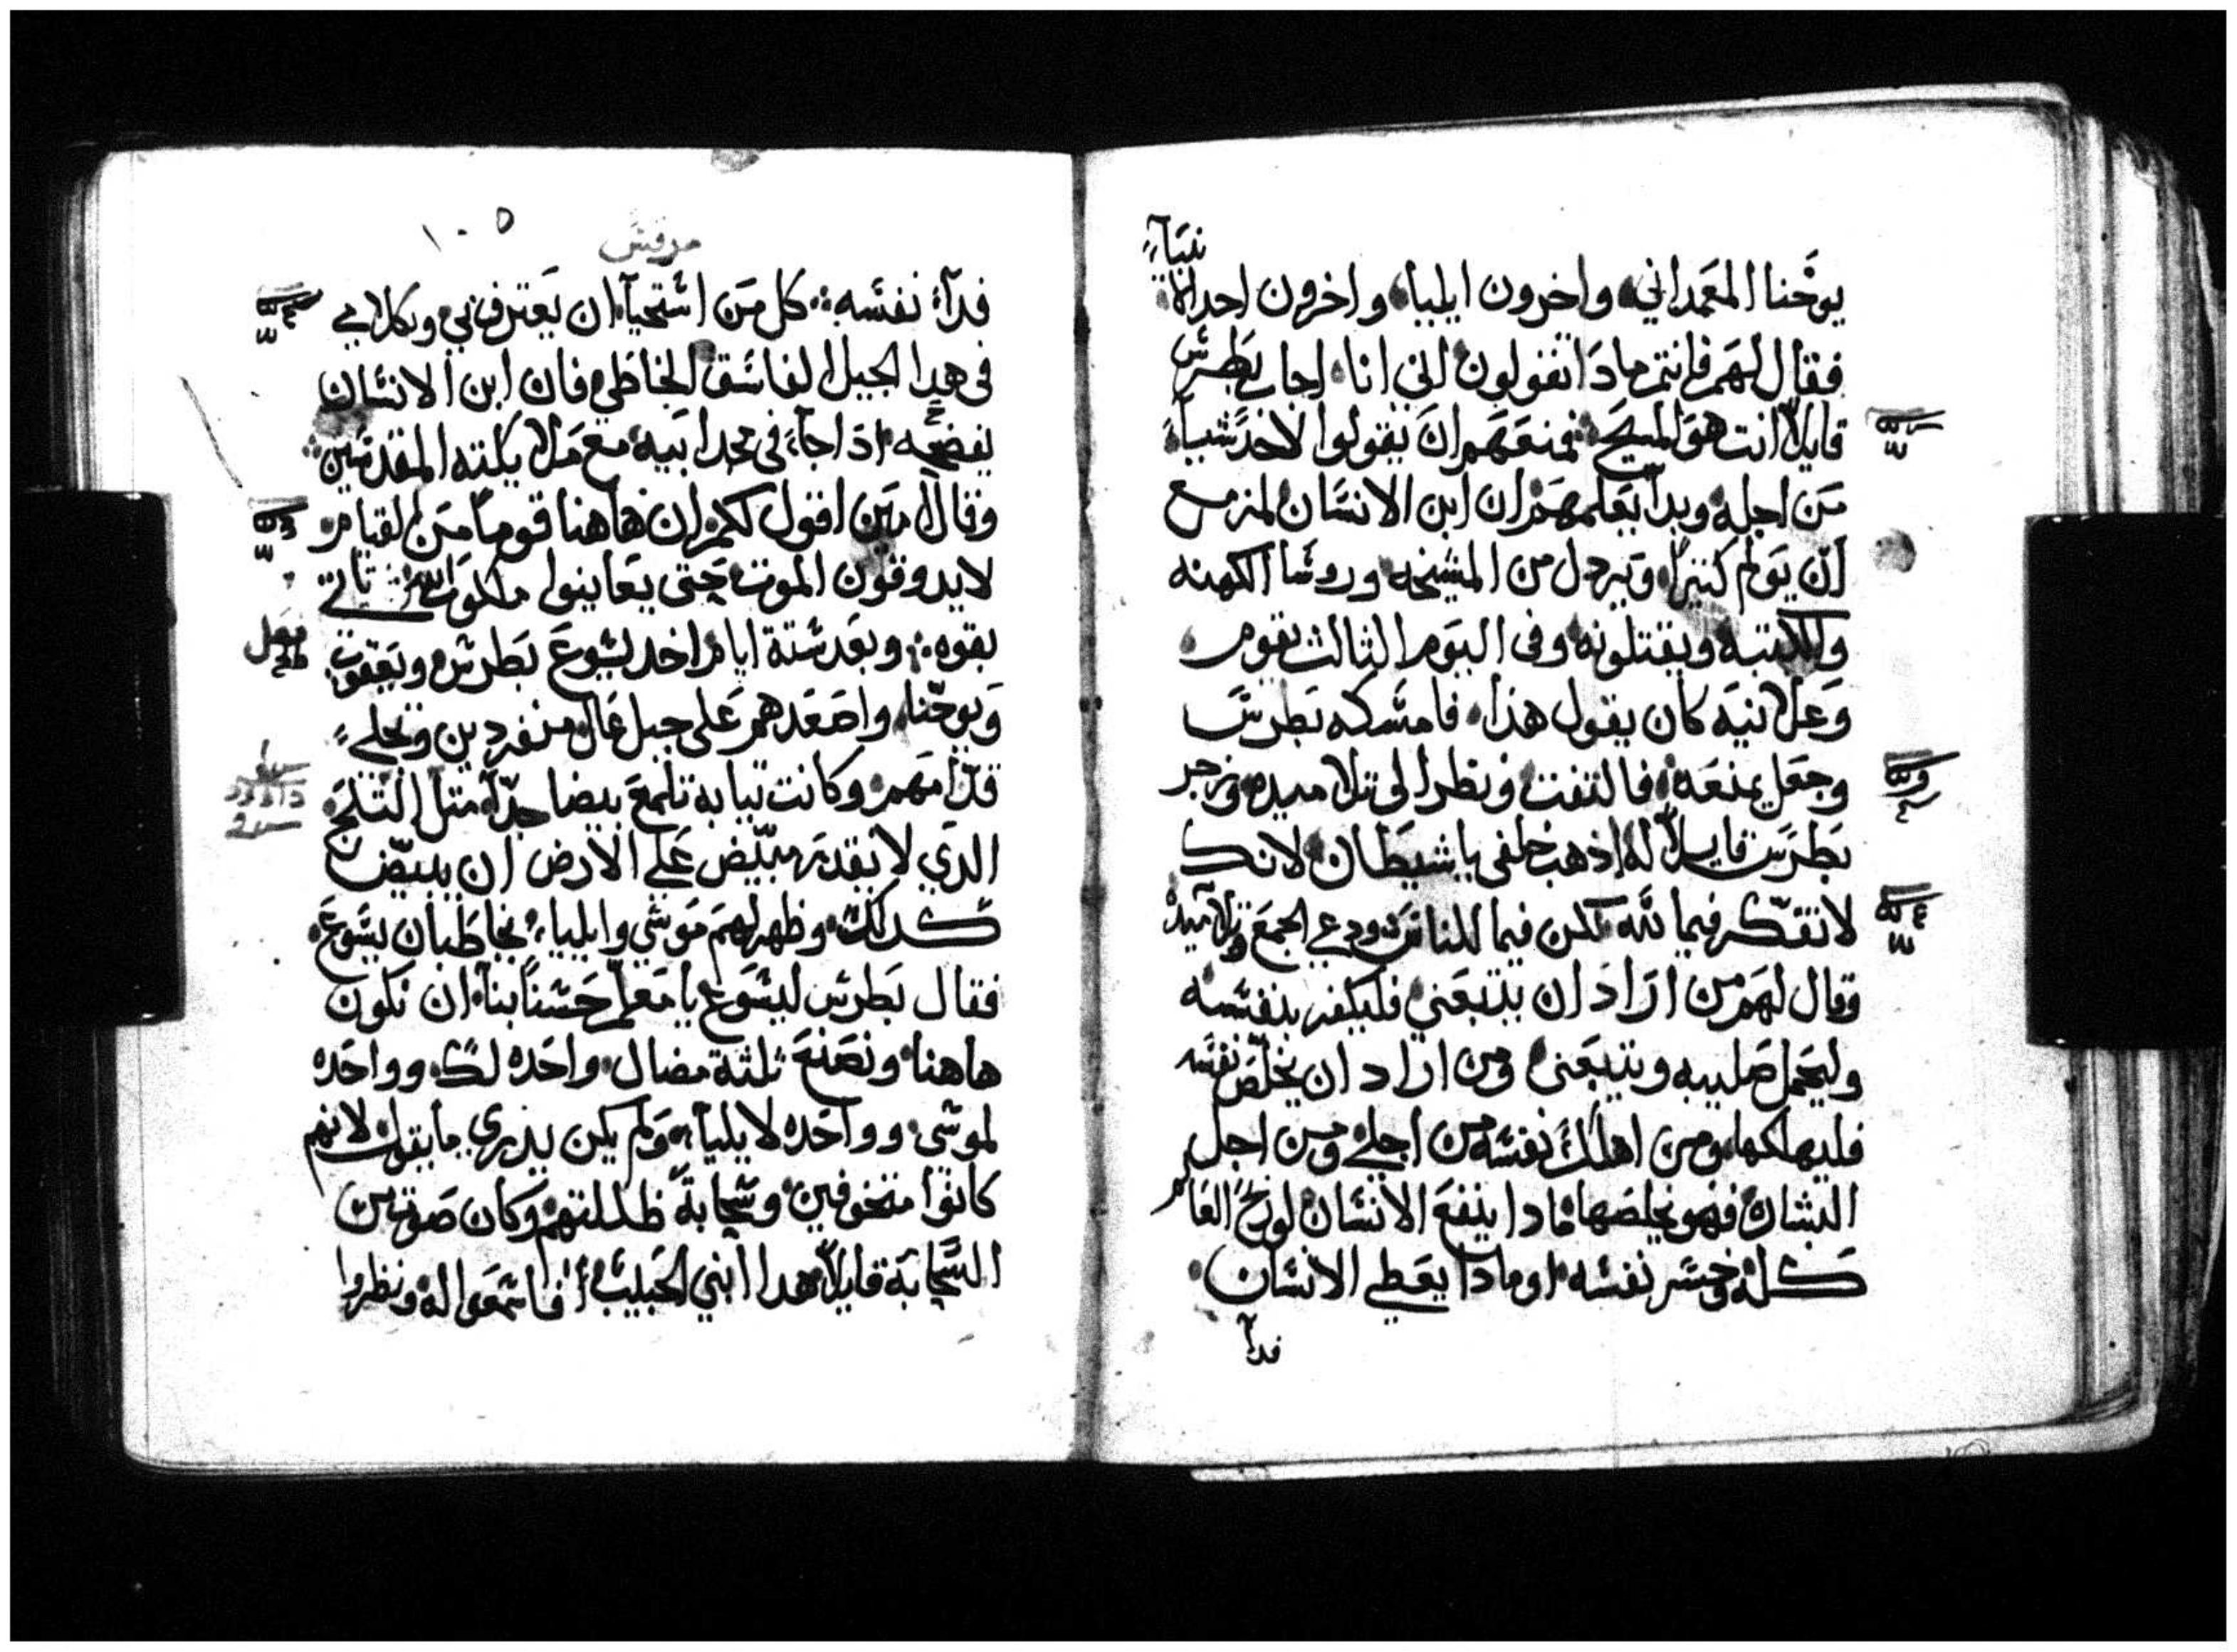 يوحنا المعمداني واخرون ايليا واخرون احد الانبيآء
فقال لهم فانتم مادا تقولون اني انا اجاب بطرس
قايلاً انت هو المسيح فمنعهم ان يقولوا لاحد شياً
من اجله وبدا يعلمهم ان ابن الانسان لمزمع
ان يولم كتيراً ويردل من المشيخه وروسا الكهنه
والكتبه ويقتلونه وفى اليوم الثالث يقوم
وعلانيه كان يقول هذا فامسكه بطرس
وجعل يمنعه فالتفت ونظر الى تلاميده وزجر
بطرس قايلاً له اذهب خلفى يا شيطان لانك
لا تفكر فيما لله لكن فيما للناس ودعي الجمع وتلاميده
وقال لهم من اراد ان يتبعني فليكفر بنفسه
وليحمل صليبه ويتبعني ومن اراد ان يخلص نفسه
فليهلكها ومن اهلك نفسه من اجلي ومن اجل
البشاره فهو يخلصها مادا ينفع الانسان لو ربح العالم
كله وخسر نفسه او مادا يعطي الانسان
فدآ
١٠٥
مرقس
فدآء نفسه كل من استحيا ان يعترف بي وبكلامي
فى هدا الجيل الفاسق الخاطي فان ابن الانسان
يفضحه ادا جآء فى مجد ابيه مع ملايكته المقدسين
وقال امين اقول لكم ان هاهنا قوماً من القيام
لا يدوقون الموت حتى يعاينوا ملكوت الله تاتي
بقوه وبعد ستة ايام اخد يسوع بطرس ويعقوب
فصل
ويوحنا واصعدهم على جبل عال منفردين وتجلي
قدامهم وكانت تيابه تلمع بيضا جدّاً متل التلج
الدي لا يقدر مبيّض علي الارض ان يبيّض
كدلك وظهر لهم موسي وايليا يخاطبان يسوع
فقال بطرس ليسوع يا معلم حسناً بنا ان نكون
هاهنا ونصنع ثلثة مضال واحده لك وواحده
لموسى وواحده لايليا ولم يكن يدري ما يقول لانهم
كانوا متخوفين وسحابة ظللتهم وكان صوت من
السحابة قايلاً هدا ابني الحبيب فاسمعوا له ونظروا